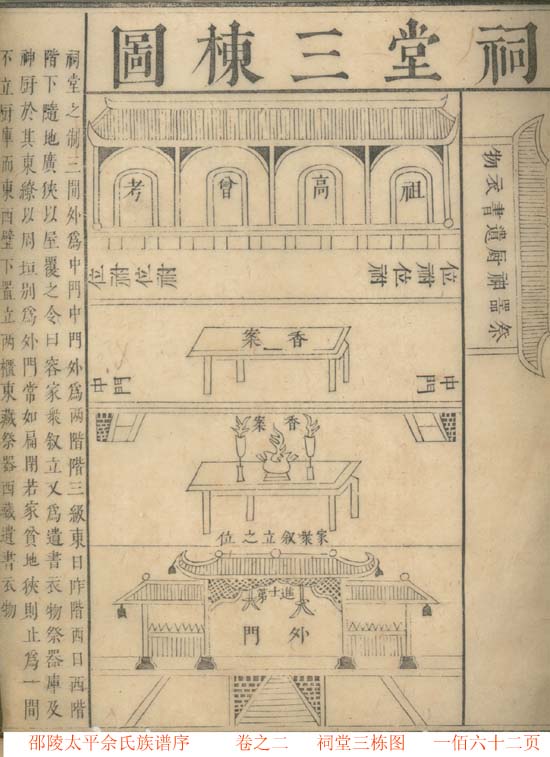 祠堂三棟圖
祭器神厨遺書衣物
祖
高
曾
考
祔位
祔位
祔位
祔位
香案
中門
中門
香案
家衆叙立之位
進士第
外門
祠堂之制三間外爲中門中門外爲兩階階三級東曰阼階西曰西階
階下隨地廣狹以屋覆之令曰容家衆叙立又爲遺書衣物祭器庫及
神厨於其東繚以周垣別爲外門常如扃閉若家貧地狹則止爲一間
不立厨庫而東西壁下置立兩櫃東藏祭器西藏遺書衣物
邵陵太平余氏族谱序 卷之二 祠堂三栋图 一佰六十二页